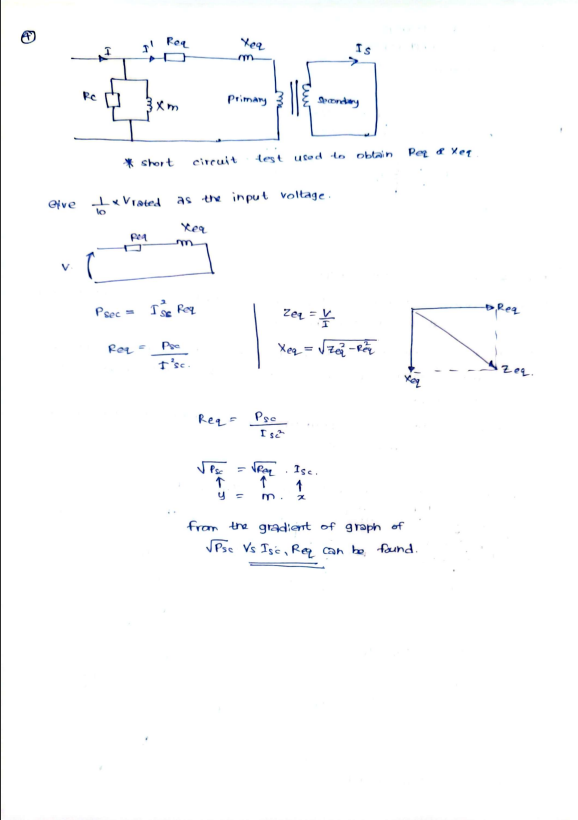 4
I I' Req Xeq Is
Rc Xm Primary Secondary
* short circuit test used to obtain Req & Xeq
Give 1/10 × Vrated as the input voltage.
Req Xeq
V
Psec = I²sc Req
Req = Psc / I²sc.
Zeq = V/I
Xeq = √(Zeq² - Req²)
Req
Xeq
Zeq.
Req = Psc / Isc²
√Psc = √Req . Isc.
↑ ↑ ↑
y = m. x
from the gradient of graph of
√Psc Vs Isc, Req can be found.